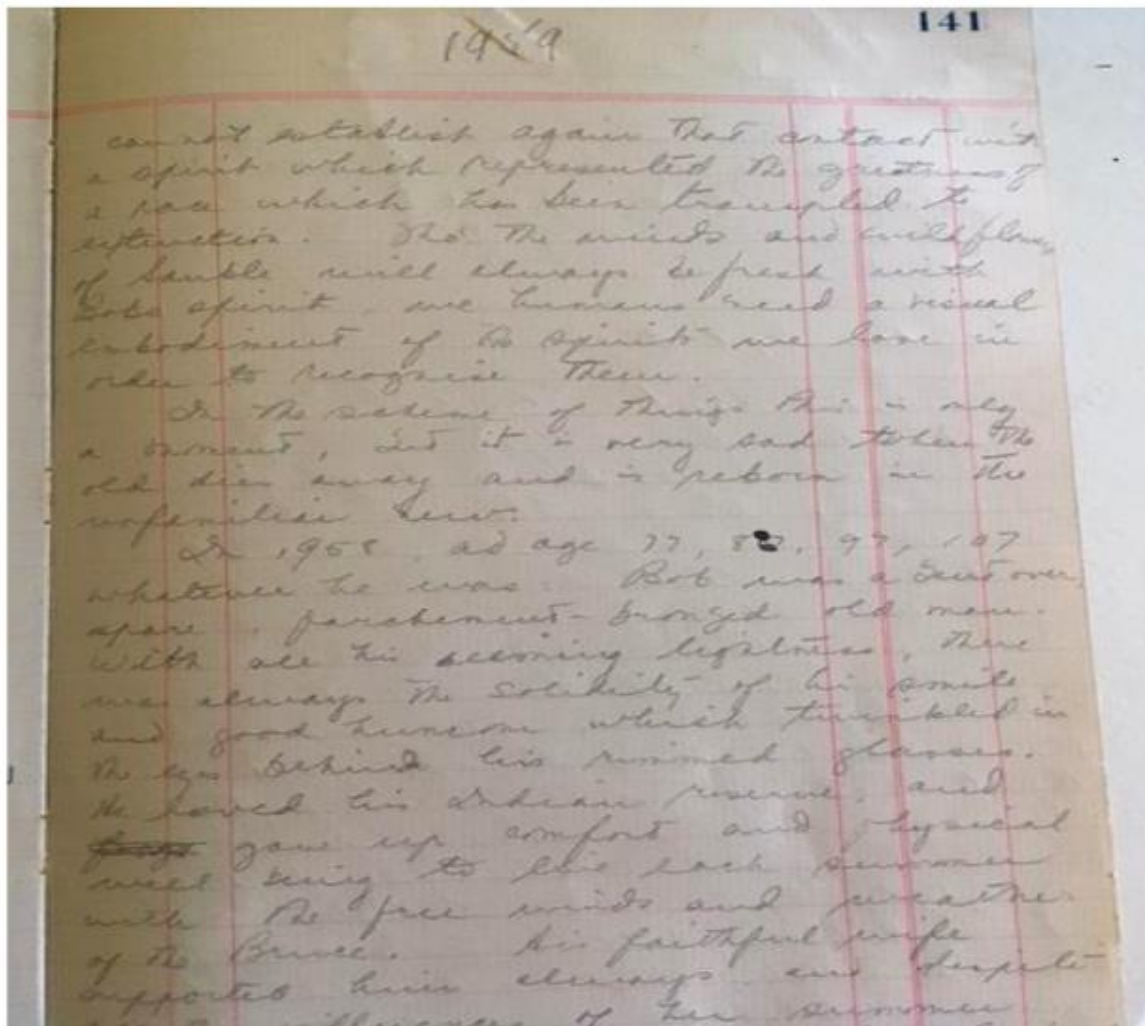 141
1959
cannot establish again that contact with
a spirit which represented the greatness of
a race which has been trampled to
extinction. Tho' the winds and wildflowers
of Sauble will always be fresh with
Bobs spirit, we humans need a visual
embodiment of the spirits we love in
order to recognise them.
In the scheme of things this is only
a moment, but it is very sad when the
old dies away and is reborn in the
unfamiliar new.
In 1958, at age 77, 87, 97, 107
whatever he was. Bob was a bent over,
spare, parchment-bronzed old man.
With all his seeming lightness, there
was always the solidity of his smile
and good humour which twinkled in
the eyes behind his rimmed glasses.
He loved his Indian reserve, and
gave up comfort and physical
well being to live each summer
with the free winds and weather
of the Bruce. His faithful wife
supported him always and despite
of her summer